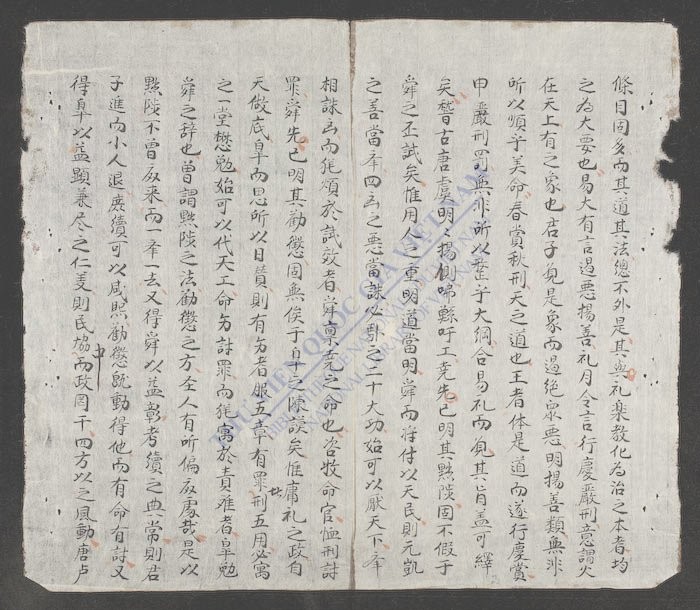 條目固多而其道其法總不外是其與礼樂教化為治之本者均
之為大要也易大有言遏悪揚善礼月令言行慶嚴刑意謂火
在天上有之象也君子見是象而遏絶衆悪明揚善類無非
所以順乎美命春賞秋刑天之道也王者体是道而遂行慶賞
申嚴刑罰無非所以整乎大綱合易礼而覌其旨盖可繹
矣嘗古唐虞明明揚側啼鯀吁工尭先已明其黜陟固不假于
舜之丕試矣惟用人之重明道當明舜而将付以天民則元凱
之善當舉四凶之悪當誅必期之二十大功始可以厭天下舉
相誅凶而獨頌於試效者舜禀尭之命也咨牧命官恤刑討
罪舜先已明其勸懲固無俟于皐之陳謨矣惟庸礼之政自
天做底皐而思所以日賛則有旬者服五章有罪刑五用必寓
之一堂懋勉始可以代天工命旬討罪而獨寓於責难者皐勉
舜之辞也曽謂黜陟之法勸懲之方圣人有所偏𢻯處哉是以
黜陟不曽𢻯来而一牽一去又得舜以益彰考績之典常則君
子進而小人退庻績可以咸熙勸懲既動得他而有命有討又
得皐以益顯兼尽之仁義則民協中而政罔干四方以之風動唐卢
THƯ VIỆN QUỐC GIA VIỆT NAM
NATIONAL LIBRARY OF VIETNAM